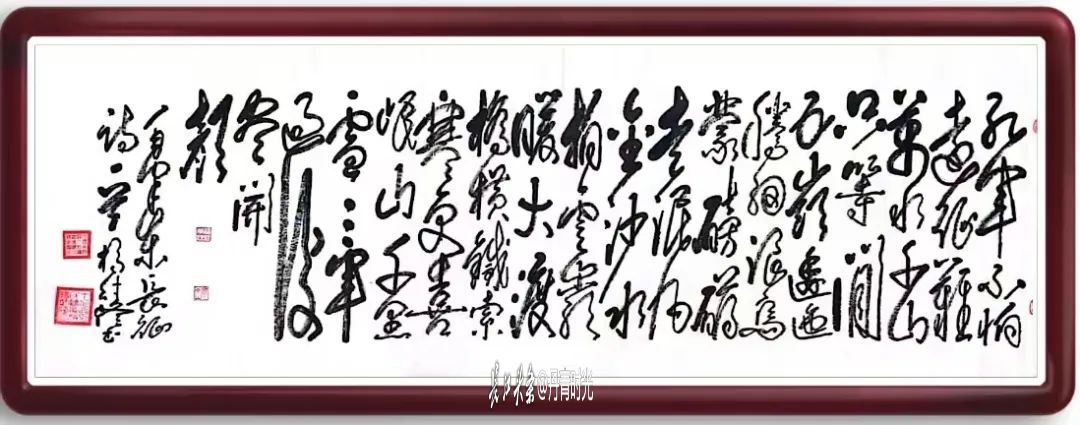 紅軍不怕
遠征難
萬水千山
只等閒
五嶺逶迤
騰細浪烏
蒙磅礴
走泥丸
金沙水
拍雲崖
暖大渡
橋橫鐵索
寒更喜
岷山千里
雪三軍
過後
盡開
顏
長征
詩一首
@丹青时光